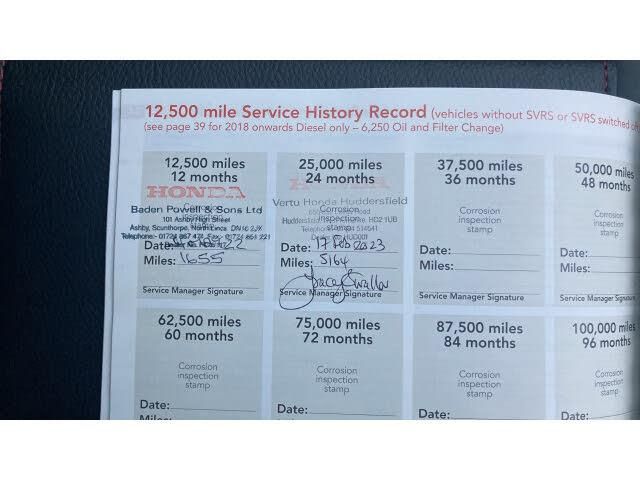 12,500 mile Service History Record (vehicles without SVRS or SVRS switched
(see page 39 for 2018 onwards Diesel only – 6,250 Oil and Filter Change)
12,500 miles
12 months
HONDA
Baden Powell & Sons Ltd
101 Ashby High Street
Ashby, Scunthorpe, North Lincs DN16 2JX
Date: 22
Miles: 1655
Service Manager Signature
25,000 miles
24 months
HONDA
Vertu Honda Huddersfield
Corrosion
stamp
Date: 17 Feb 2023
Miles: 5164
Service Manager Signature
37,500 miles
36 months
Corrosion
inspection
stamp
Date:
Miles:
Service Manager Signature
50,000 miles
48 months
Corrosion
inspection
stamp
Date:
Miles:
Service Manager
62,500 miles
60 months
Corrosion
inspection
stamp
Date:
75,000 miles
72 months
Corrosion
inspection
stamp
Date:
87,500 miles
84 months
Corrosion
inspection
stamp
Date:
100,000 miles
96 months
Corrosion
inspection
stamp
Date: